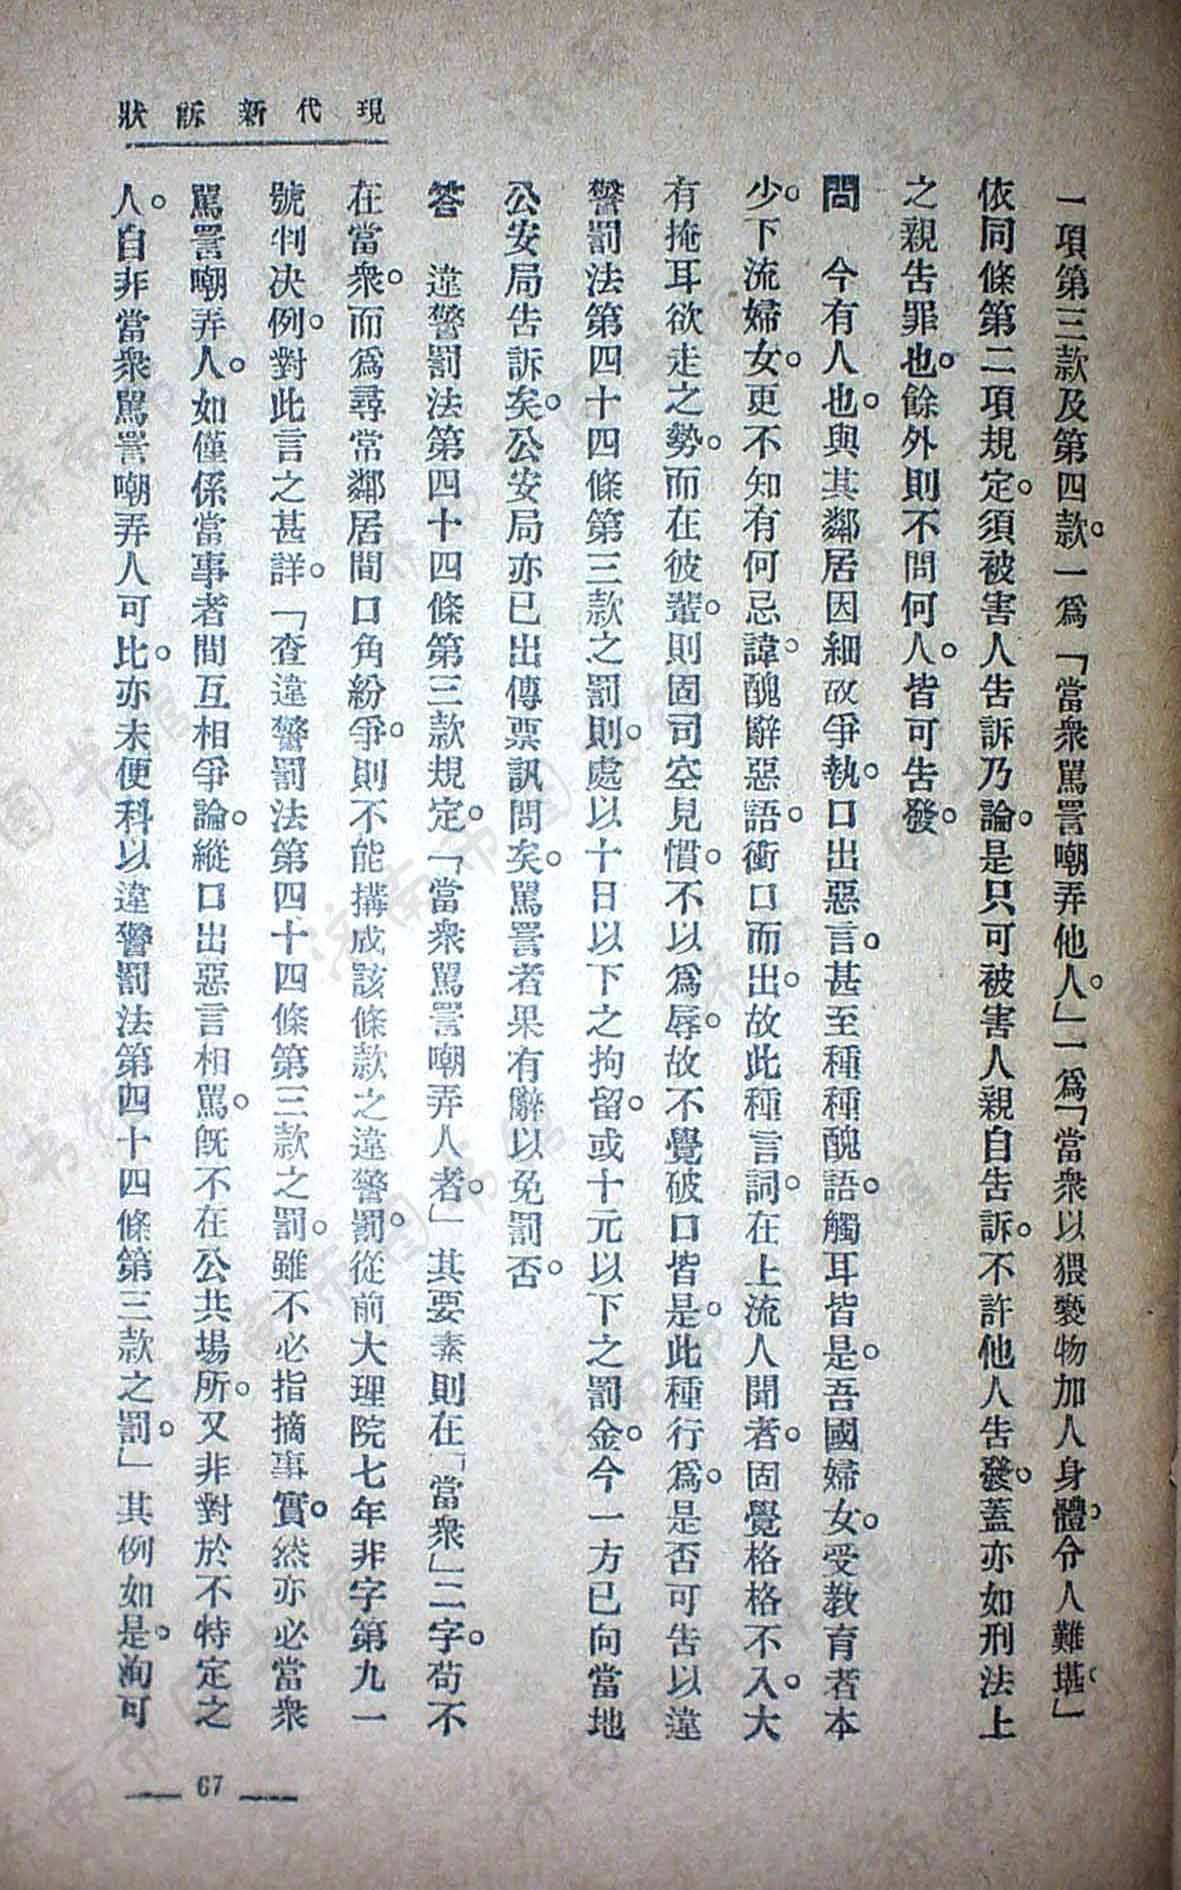 現代新訴狀
一項第三款及第四款。一爲「當衆駡詈嘲弄他人。」一爲「當衆以猥褻物加人身體。令人難堪。」
依同條第二項規定。須被害人告訴乃論。是只可被害人親自告訴。不許他人告發。蓋亦如刑法上
之親告罪也。餘外則不問何人。皆可告發。
問　今有人也。與其鄰居因細故爭執。口出惡言。甚至種種醜語。觸耳皆是。吾國婦女。受教育者本
少。下流婦女。更不知有何忌諱。醜辭惡語。衝口而出。故此種言詞。在上流人聞者。固覺格格不入。大
有掩耳欲走之勢。而在彼輩。則固司空見慣。不以爲辱。故不覺破口皆是。此種行爲。是否可告以違
警罰法第四十四條第三款之罰則。處以十日以下之拘留。或十元以下之罰金。今一方已向當地
公安局告訴矣。公安局亦已出傳票訊問矣。駡詈者果有辭以免罰否。
答　違警罰法第四十四條第三款規定。「當衆駡詈嘲弄人者。」其要素則在「當衆」二字。苟不
在當衆。而爲尋常鄰居間口角紛爭。則不能搆成該條款之違警罰。從前大理院七年非字第九一
號判决例。對此言之甚詳。「查違警罰法第四十四條第三款之罰。雖不必指摘事實。然亦必當衆
駡詈嘲弄人。如僅係當事者間互相爭論。縱口出惡言相駡。旣不在公共場所。又非對於不特定之
人。自非當衆駡詈嘲弄人可比。亦未便科以違警罰法第四十四條第三款之罰。」其例如是。洵可
67
圖书馆
济南市图书馆